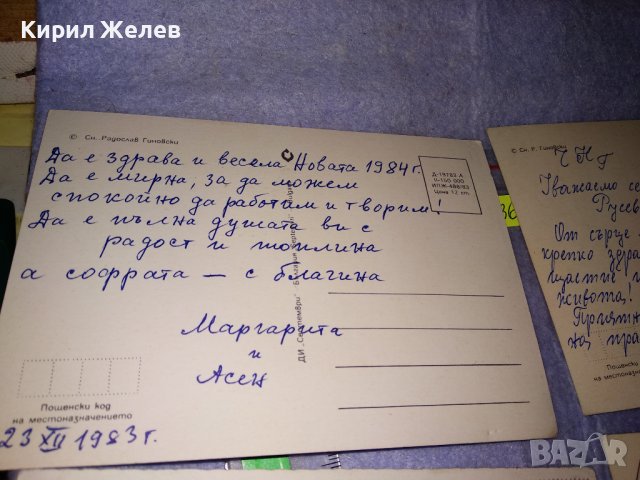 Кирил Желев
© Сн. Радослав Гиновски
Да е здрава и весела Новата 1984 г.
Да е мирна, за да можем
спокойно да работим и творим!
Да е пълна душата ви с
радост и топлина
а софрата — с благина
Маргарита
и
Асен
Пощенски код
на местоназначението
23 XII 1983 г.
Д-19783 А
II-100 000
ИПЖ-488/83
Цена 12 ст.
ДИ „Септември"
36
© Сн. Р. Гиновски
ЧНГ
Уважаемо се
Русев
От сърце
крепко здра
щастие и
живота!
Приятн
на пра
Пощенски код
на местоназна
BAZAR